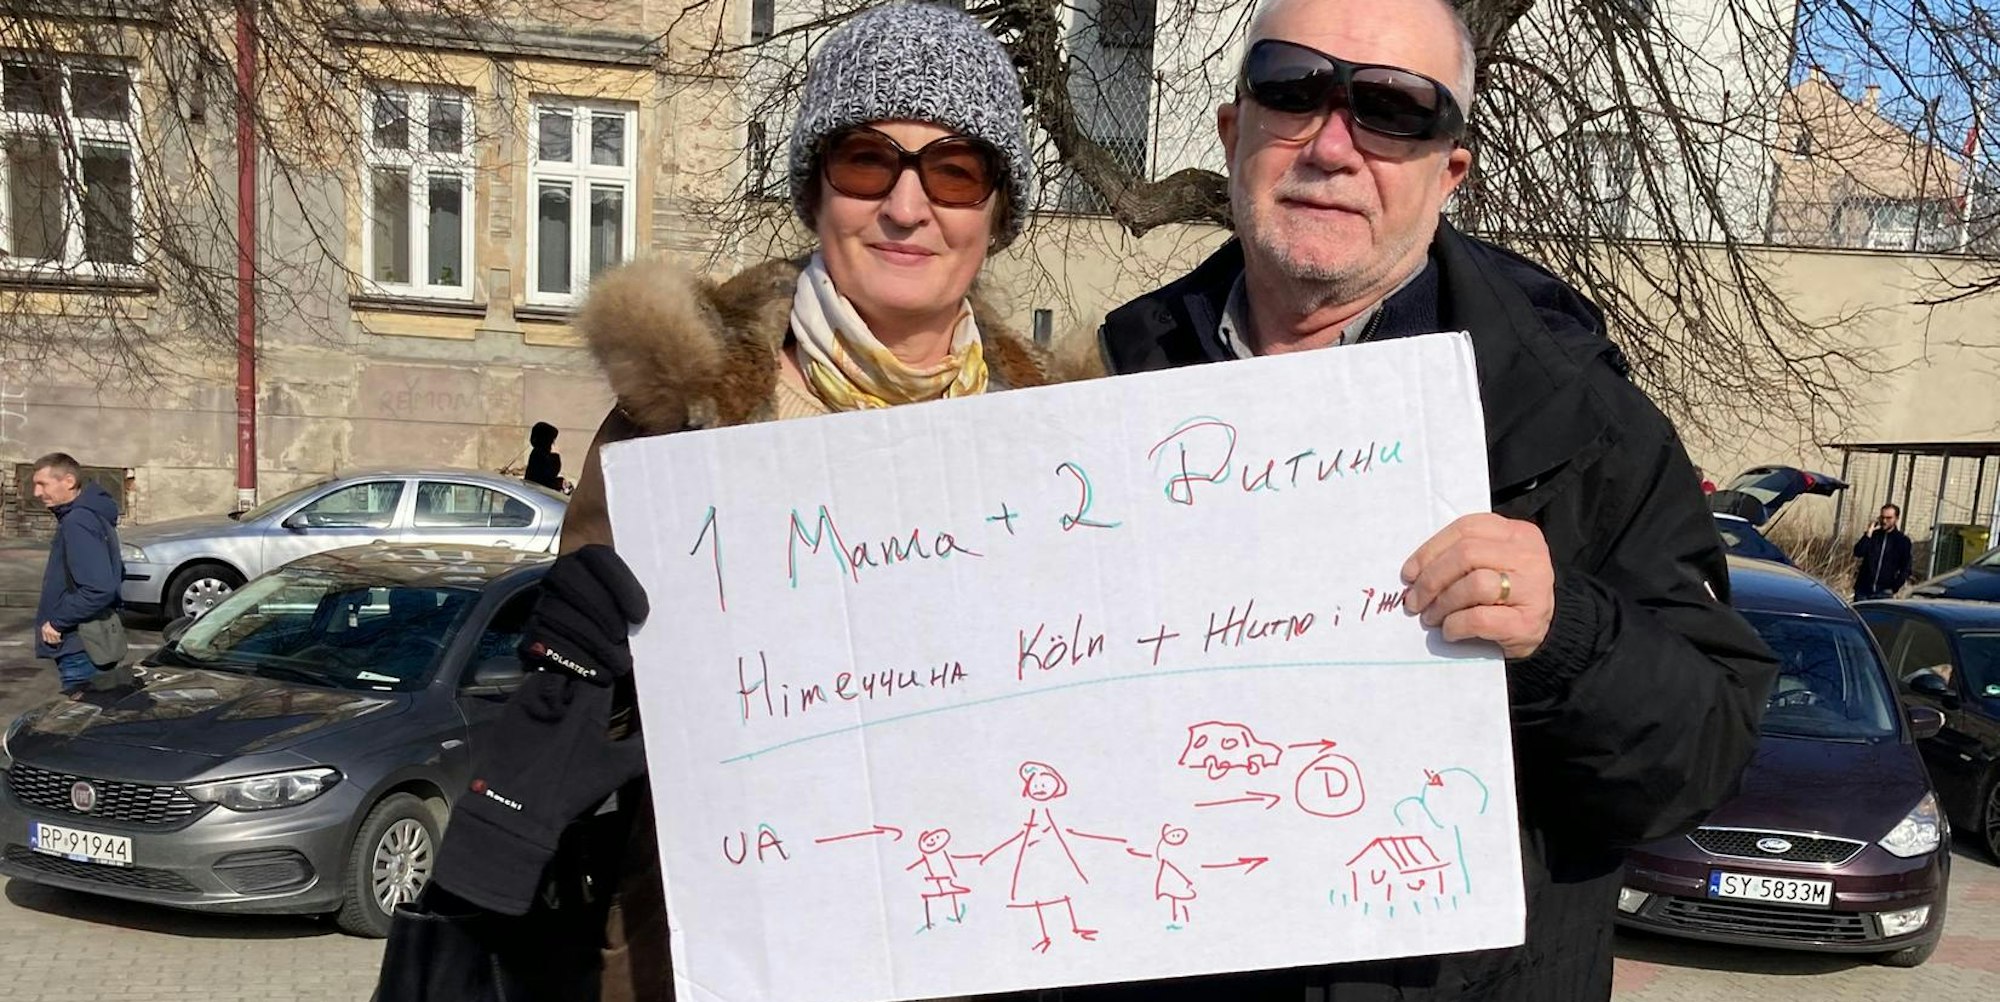 1 Мама + 2 Дитини
Німеччина Köln + Житло і їжа
UA
D
POLARTEC®
RP 91944
SY 5833M
Ford
FIAT